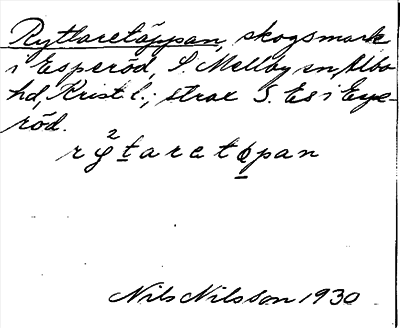 Ryttaretäppan, skogsmark
i Esperöd, S. Mellby sn, Albo
hd, Krist l.; strax S. Es i Espe-
röd.
rỿ²taretɛpan
Nils Nilsson 1930